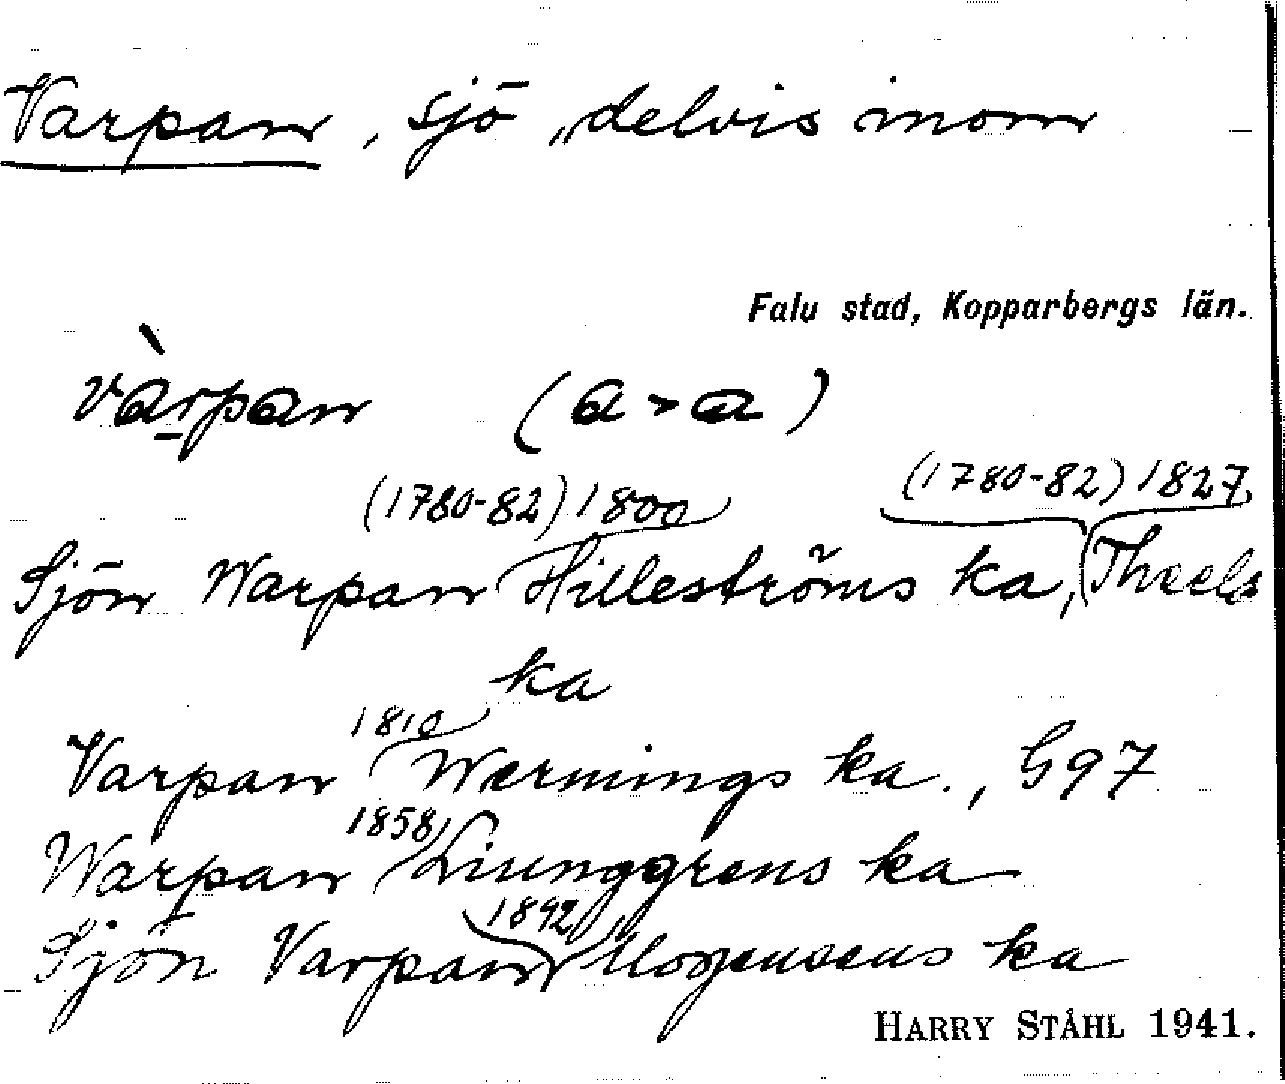 Varpan, sjö, delvis inom
Falu stad, Kopparbergs län.
vàrpan (a-a)
(1780-82) 1800 (1780-82) 1827
Sjön Warpan Hilleströms ka, Theels
ka
1810
Varpan Wernings ka., G97
1858
Warpan Liunggrens ka
1892
Sjön Varpan Mogensens ka
HARRY STÅHL 1941.